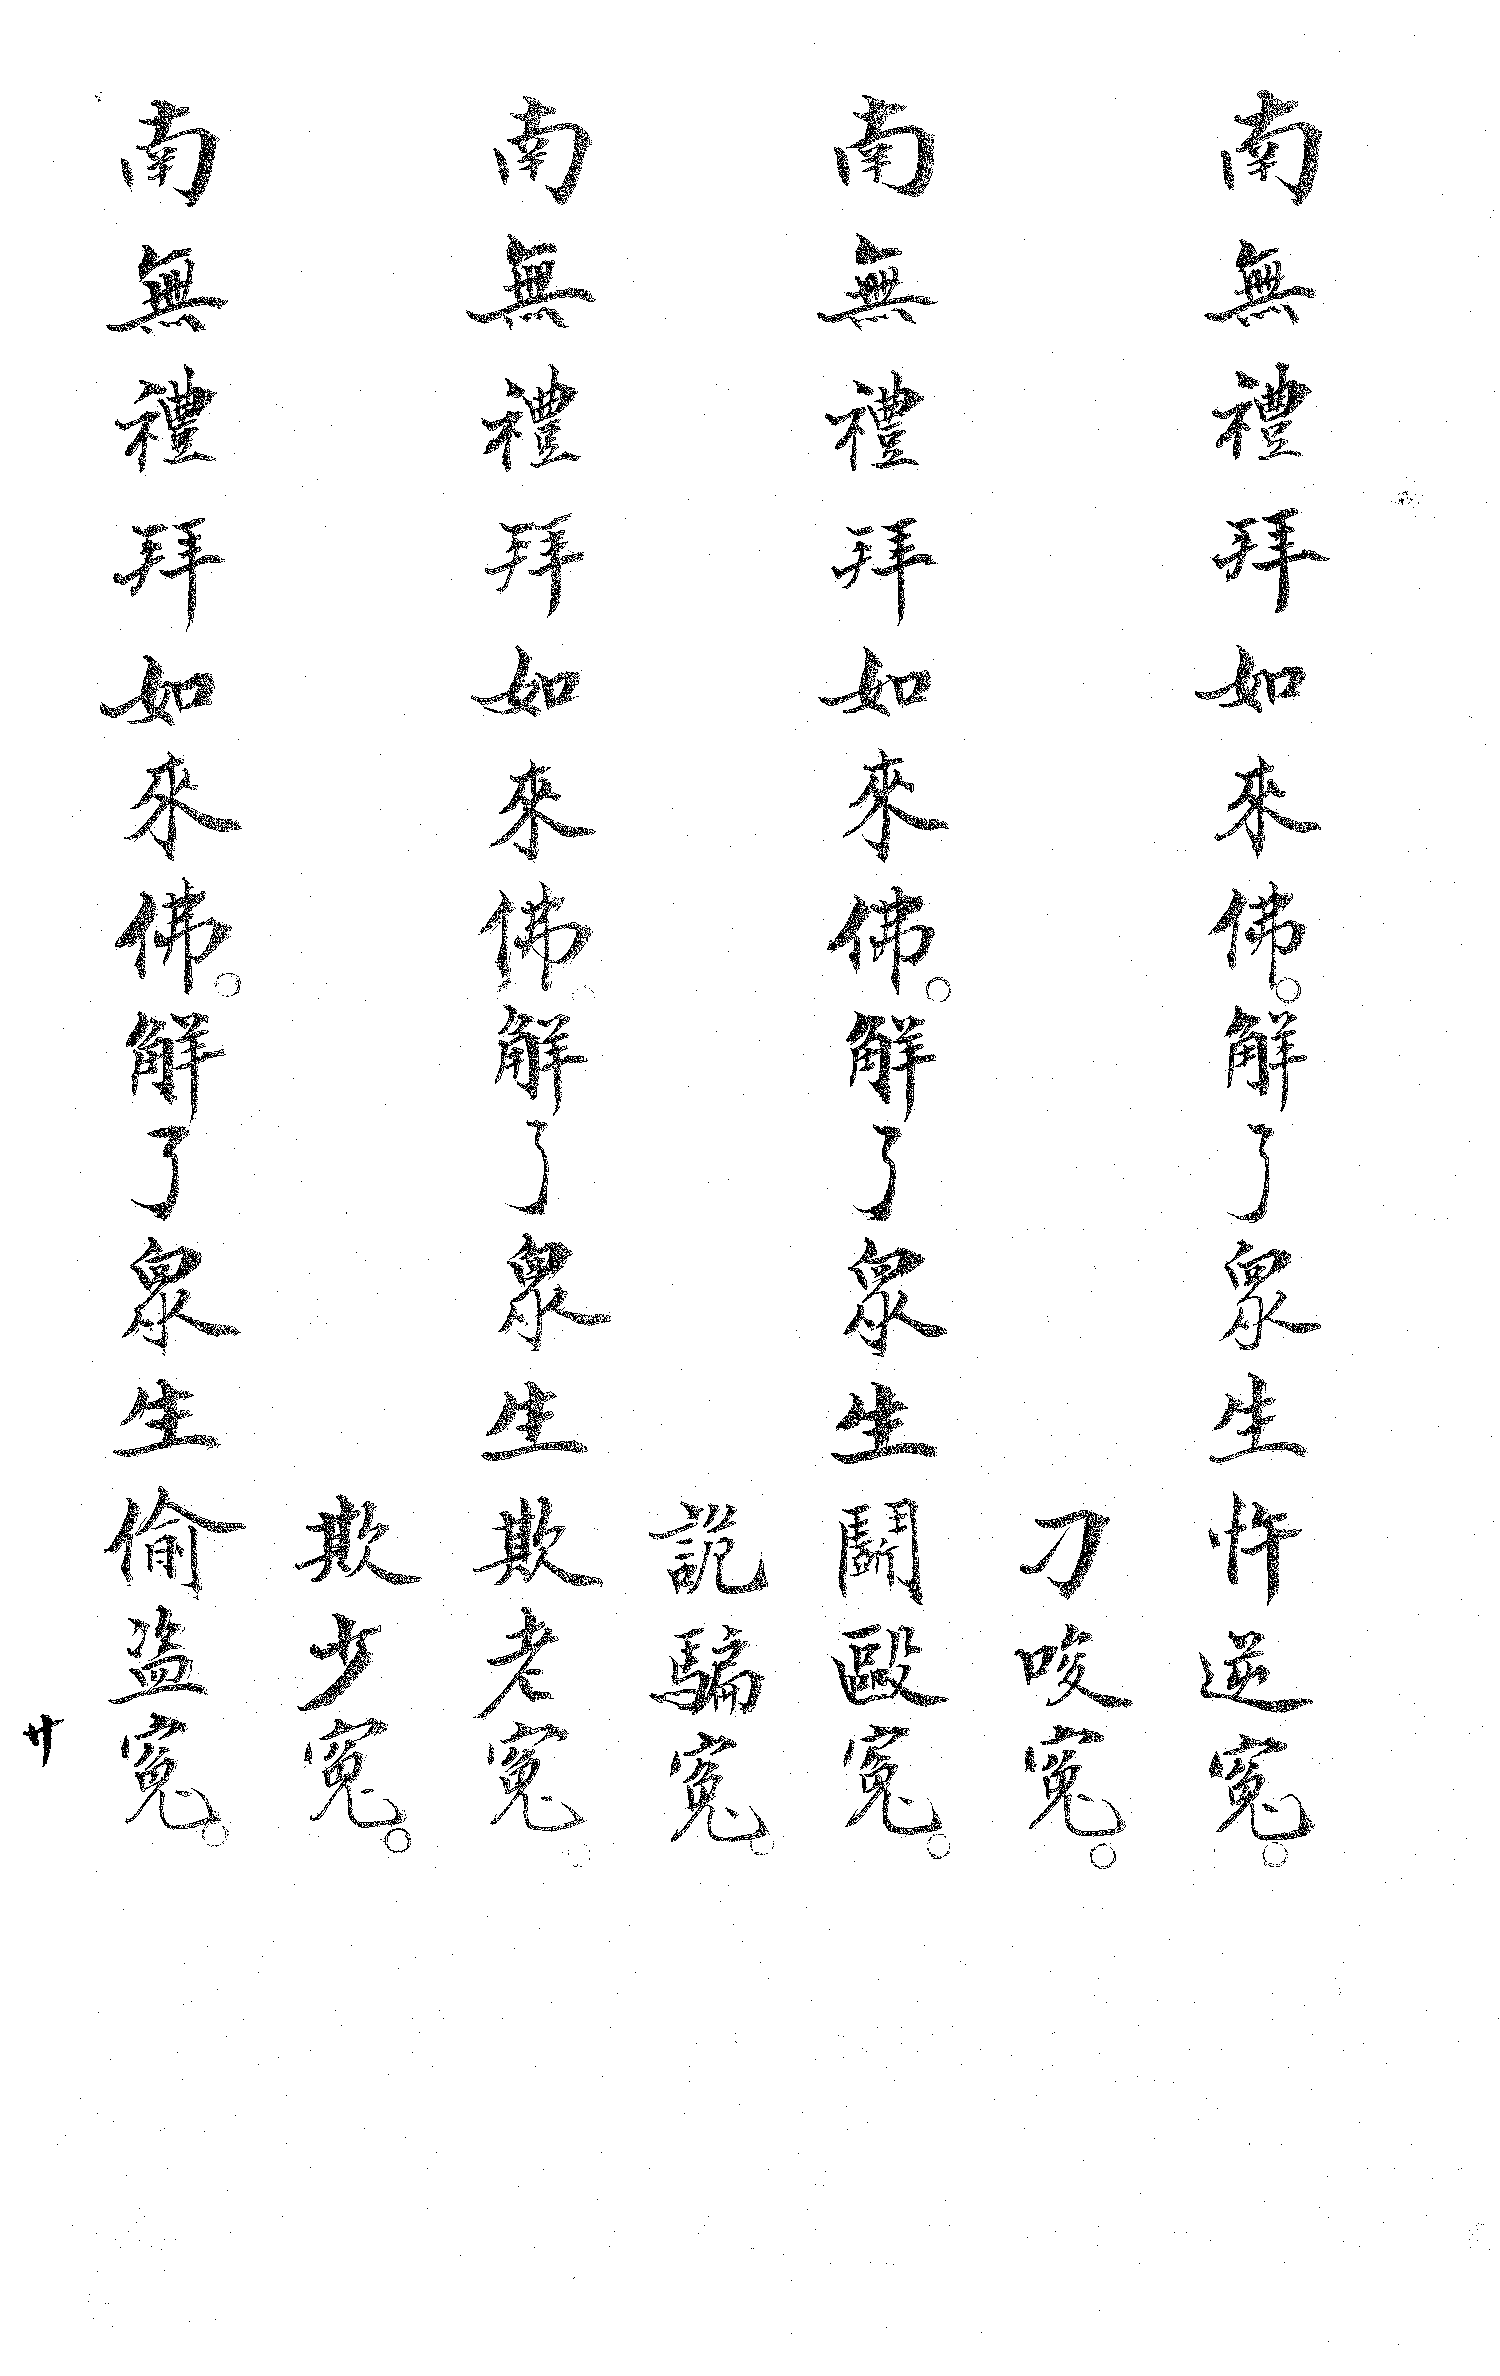 南無禮拜如來佛。解了眾生忤逆寃。
刁唆寃。
南無禮拜如來佛。解了眾生鬭毆寃。
詭騙寃。
南無禮拜如來佛。解了眾生欺老寃。
欺少寃。
南無禮拜如來佛。解了眾生偷盜寃。
廿